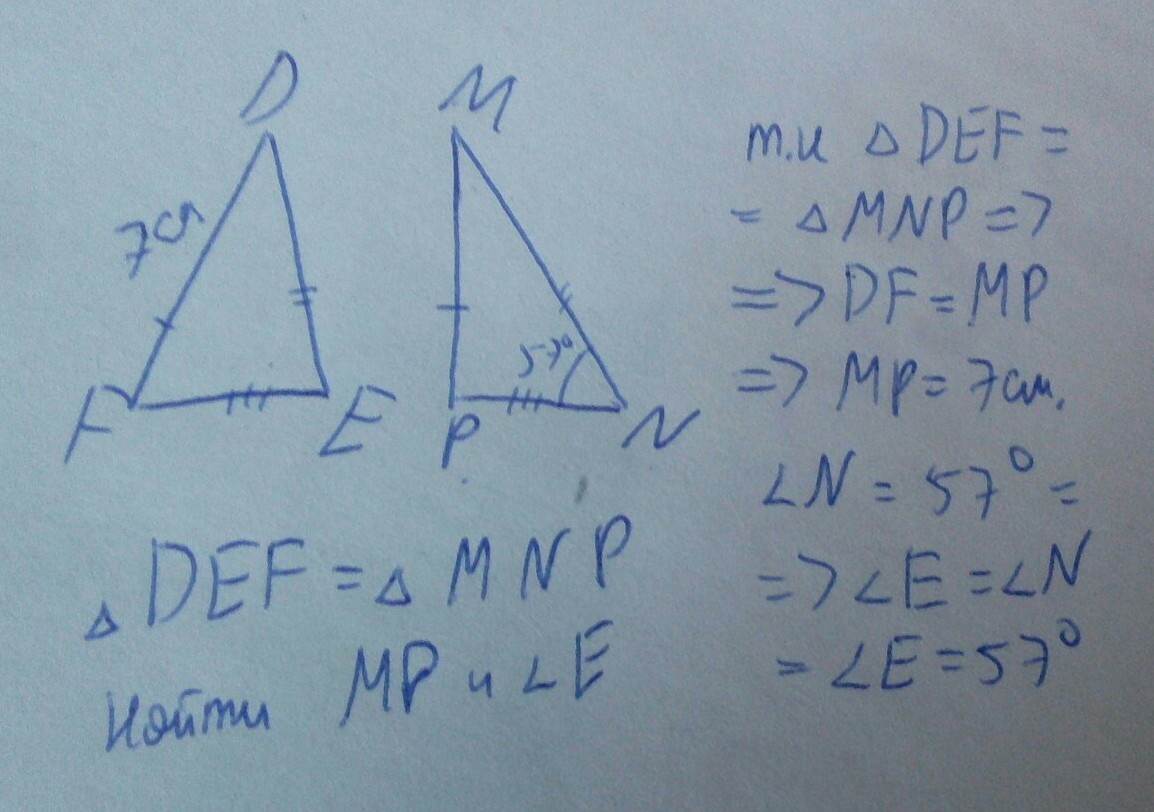 D
M
7см
57°
F
E
P
N
△DEF = △MNP
Найти MP и ∠E
т.к △DEF =
= △MNP =>
=> DF = MP
=> MP = 7см.
∠N = 57° =
=> ∠E = ∠N
= ∠E = 57°